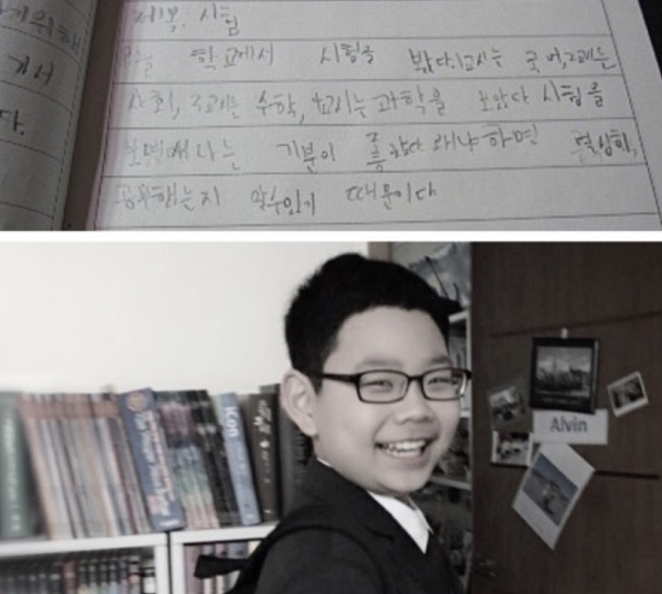 게위해
게서
다.
제목: 시험
오늘 학교에서 시험을 봤다. 1교시는 국어, 2교시는
사회, 3교시는 수학, 4교시는 과학을 보았다 시험을
보면서 나는 기분이 좋았다 왜냐하면 열심히,
공부했는지 알수있기 때문이다
Alvin